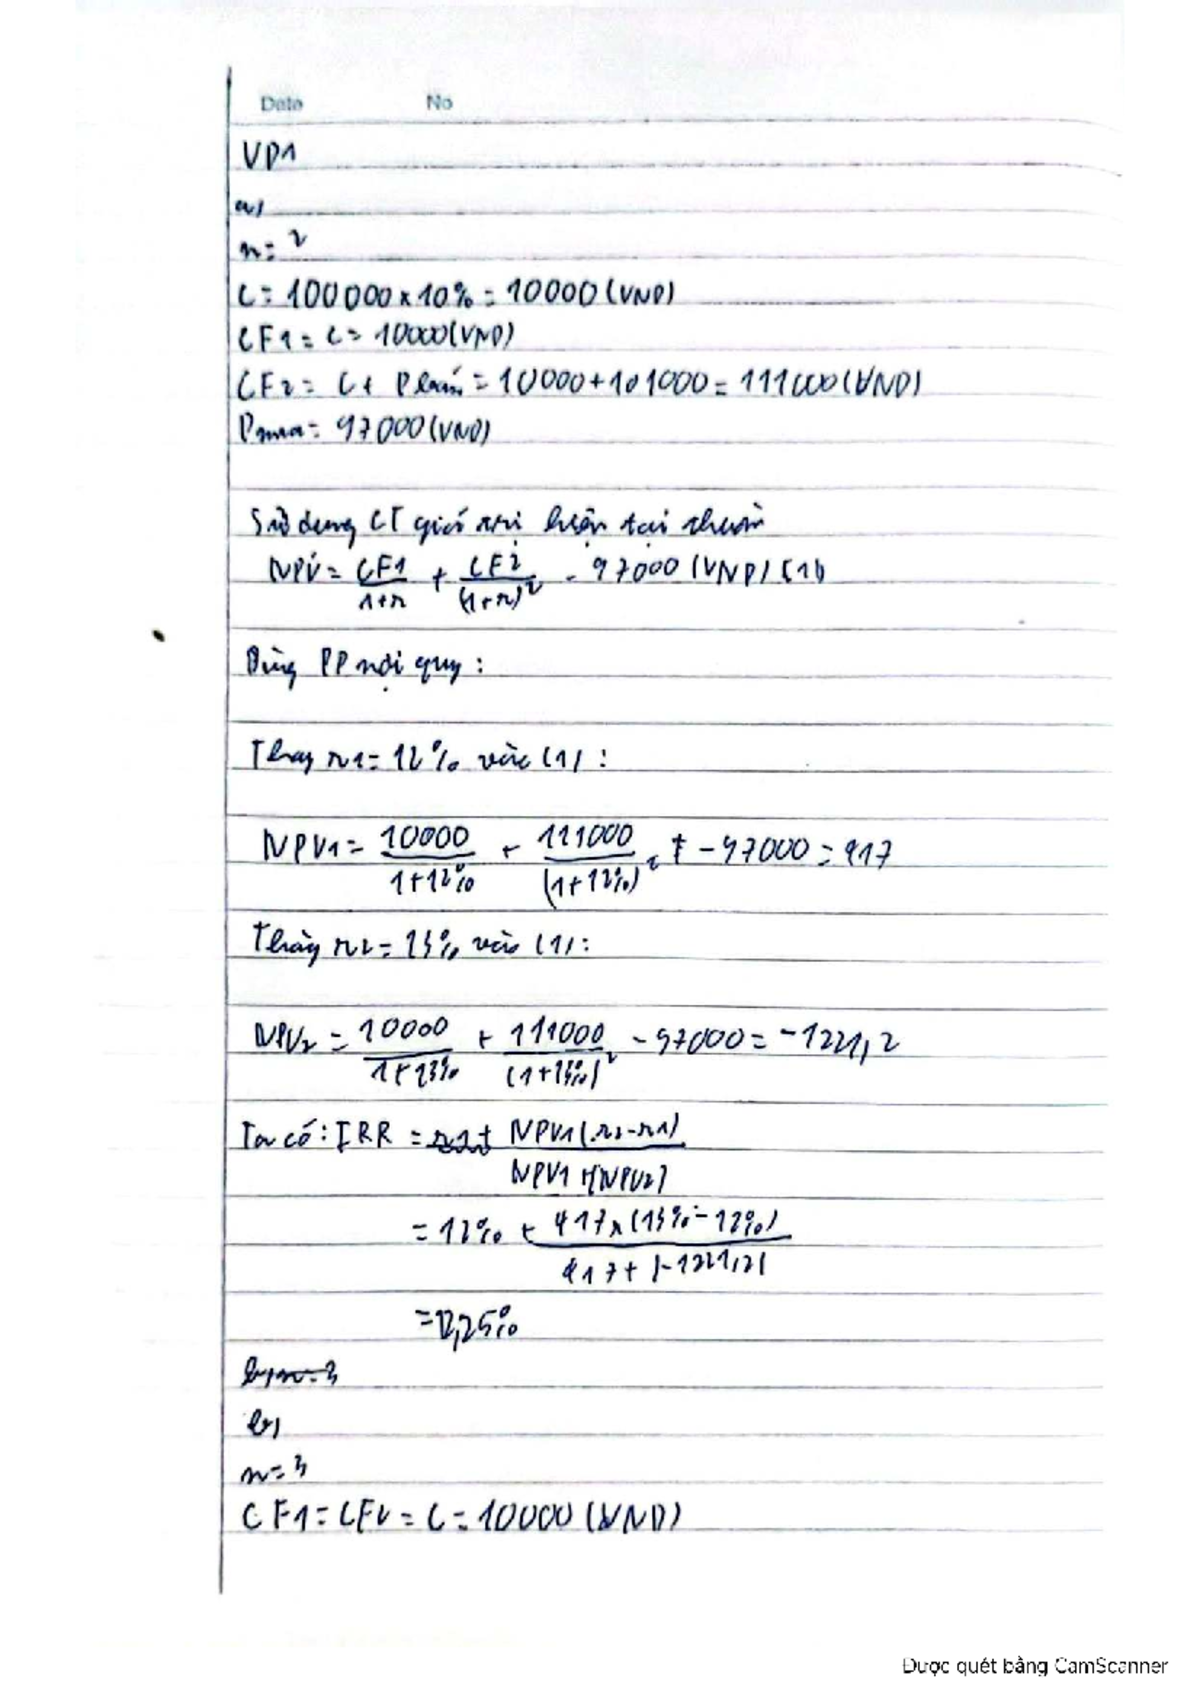 Date No
VD1
a)
n = 2
C = 100000 x 10% = 10000 (VND)
CF1 = C = 10000 (VND)
CF2 = C + P bán = 10000 + 101000 = 111000 (VND)
Pmua = 97000 (VND)
Sử dụng CT giá trị hiện tại thuần
NPV = CF1/(1+r) + CF2/(1+r)² - 97000 (VND) (1)
Dùng PP nội quy:
Thay r1 = 12% vào (1):
NPV1 = 10000/(1+12%) + 111000/(1+12%)² - 97000 = 417
Thay r2 = 13% vào (1):
NPV2 = 10000/(1+13%) + 111000/(1+13%)² - 97000 = -1221,2
Ta có: IRR = r1 + NPV1(r2-r1)/(NPV1+|NPV2|)
= 12% + 417 x (13% - 12%)/(417 + |-1221,2|)
= 12,25%
b) n = 3
b)
n = 3
CF1 = CF2 = C = 10000 (VND)
Được quét bằng CamScanner